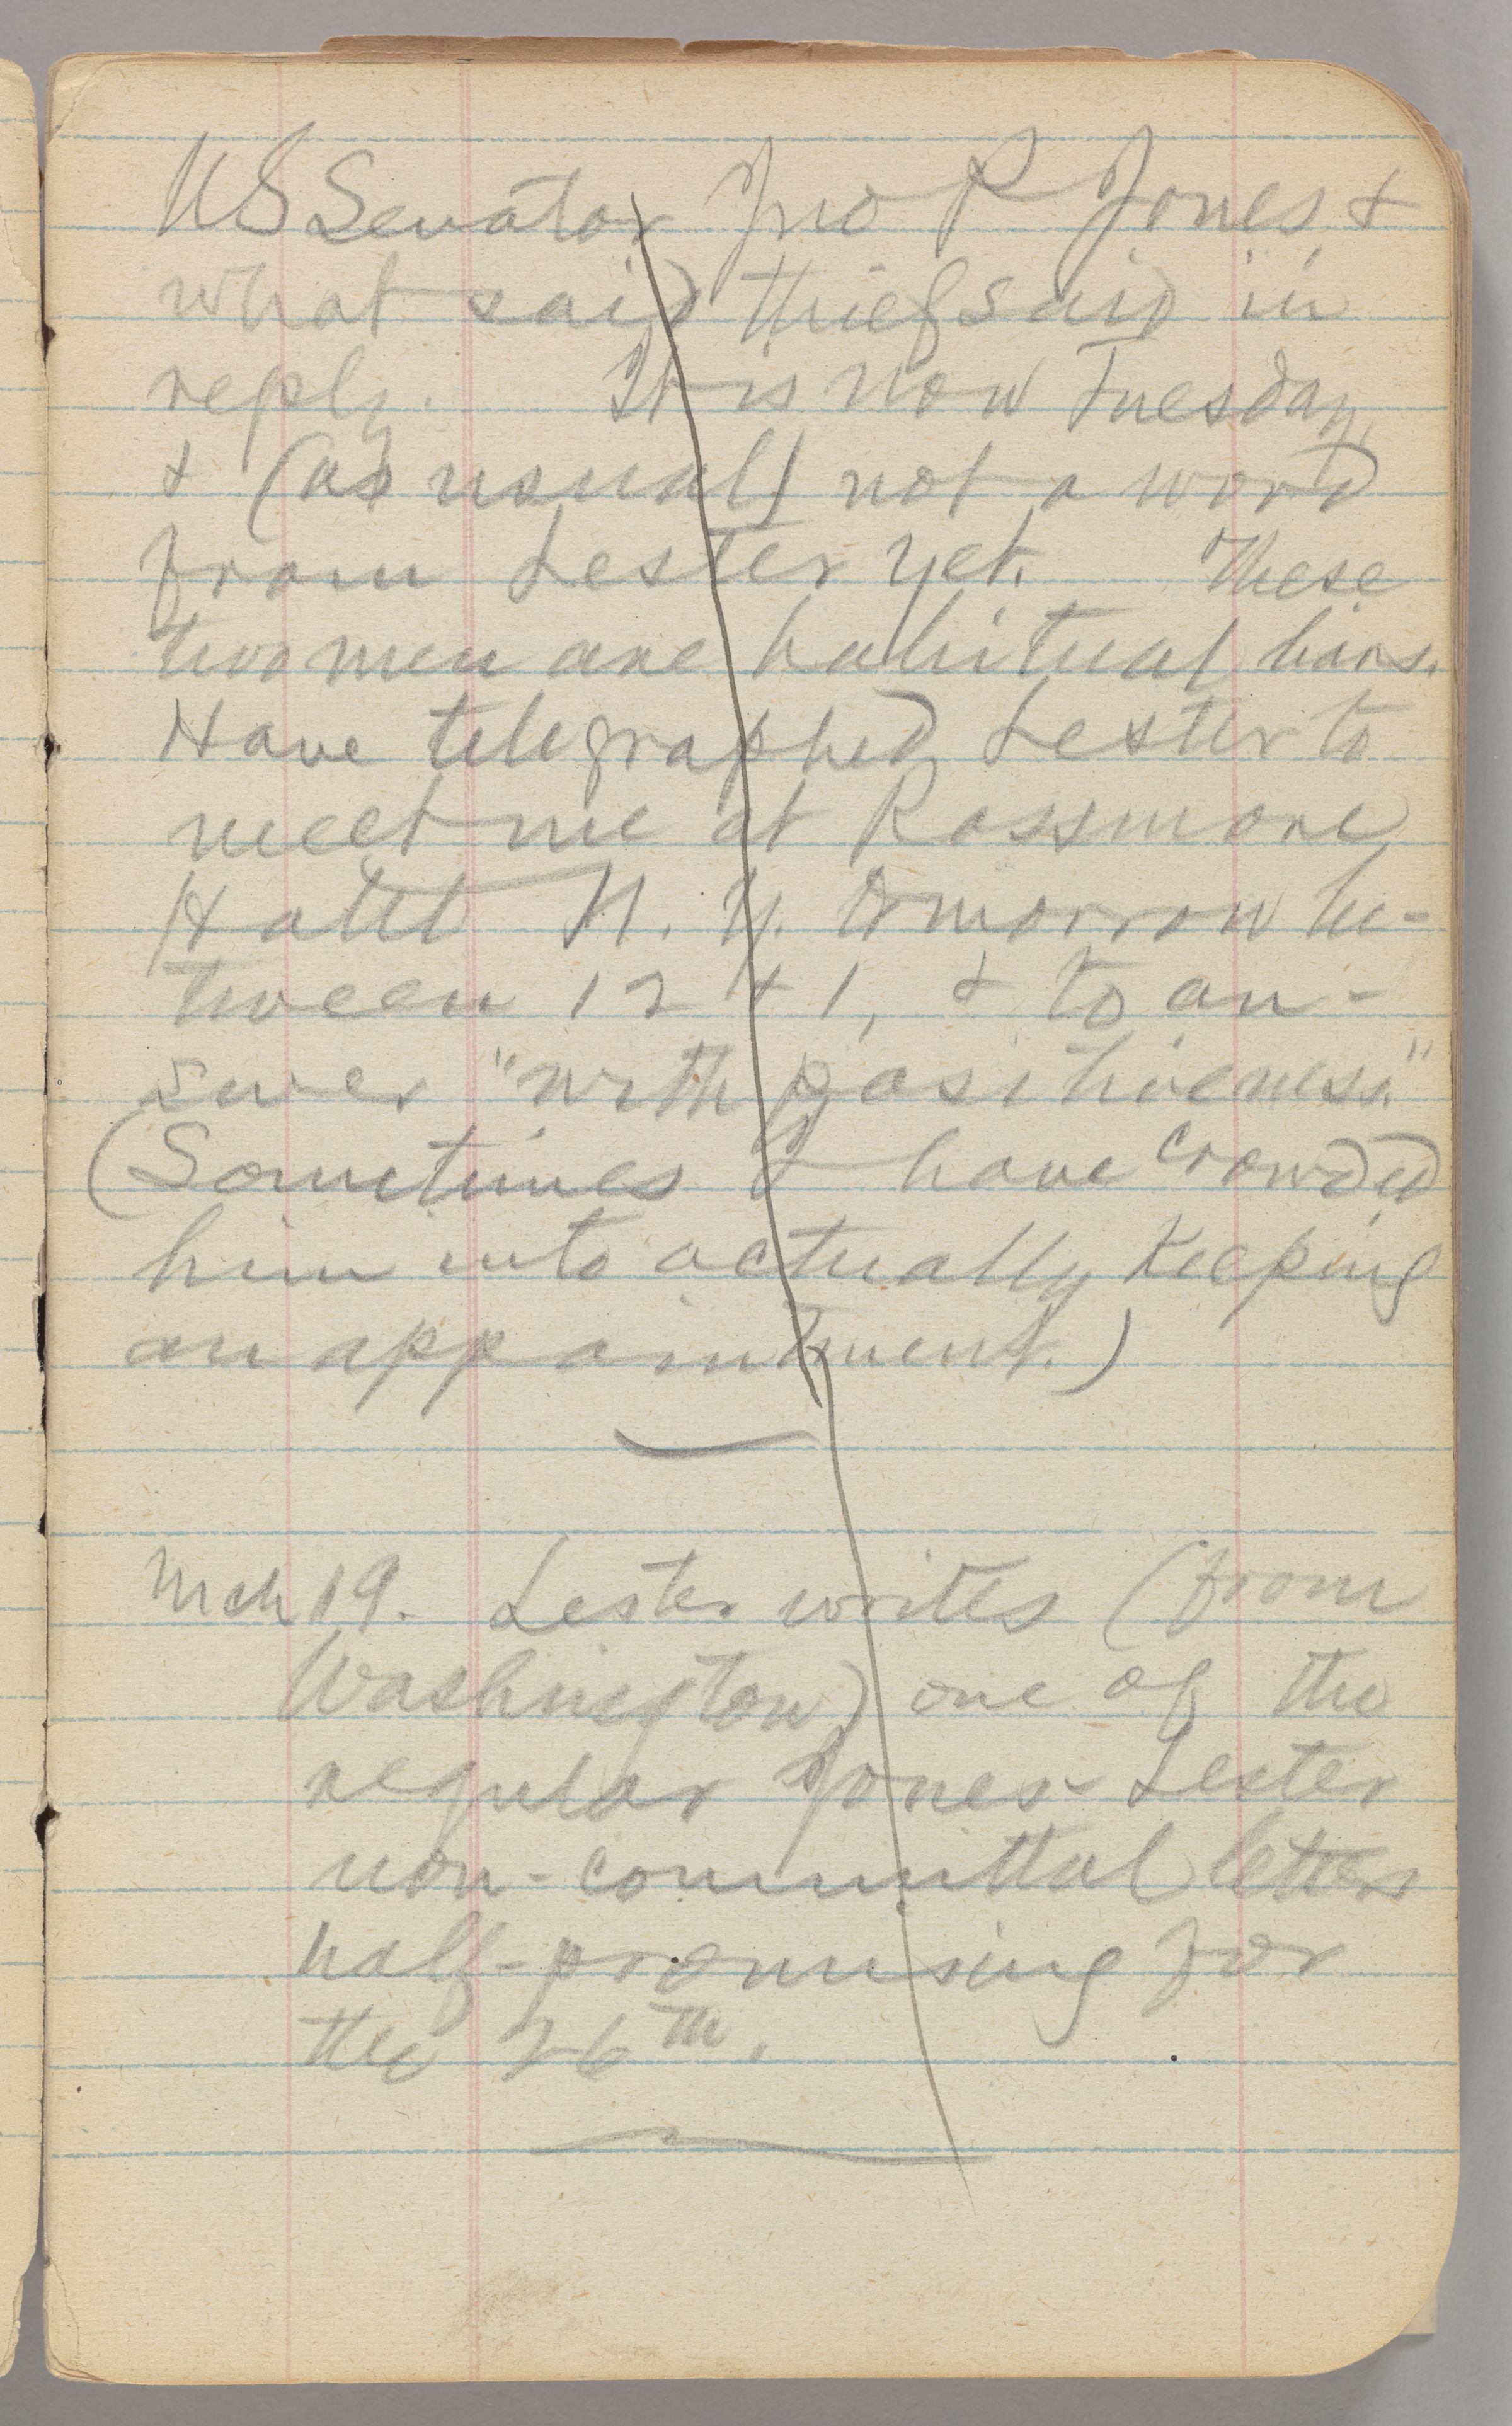 US Senator Jno P Jones &
what said thief said in
reply. It is now Tuesday,
& (as usual) not a word
from Lester yet. These
two men are habitual liars.
Have telegraphed Lester to
meet me at Rossmore
Hotel N. Y. tomorrow be-
tween 12 & 1, & to an-
swer "with positiveness."
(Sometimes I have crowded
him into actually keeping
an appointment.)
Mch 19. Lester writes (from
Washington) one of the
regular Jones-Lester
non-committal letters
half-promising for
the 26th.